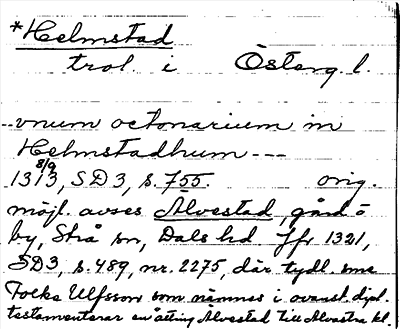 *Helmstad
trol. i Österg. l.
--vnum octonarium in
Helmstadhum---
8/9
1313, SD3, s. 755. orig.
möjl. avses Alvestad, gård o
by, Strå sn, Dals hd Jfr 1321,
SD3, s. 489, nr. 2275, där tydl. sme
Folke Ulfsson som nämnes i ovanst. dipl.
testamenterar en åtting Alvestad till Alvastra kl.